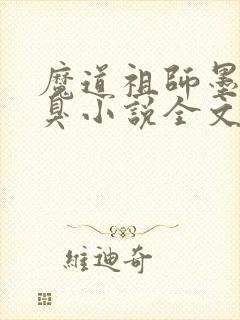 魔道祖師墨
臭小說全文
維迪奇